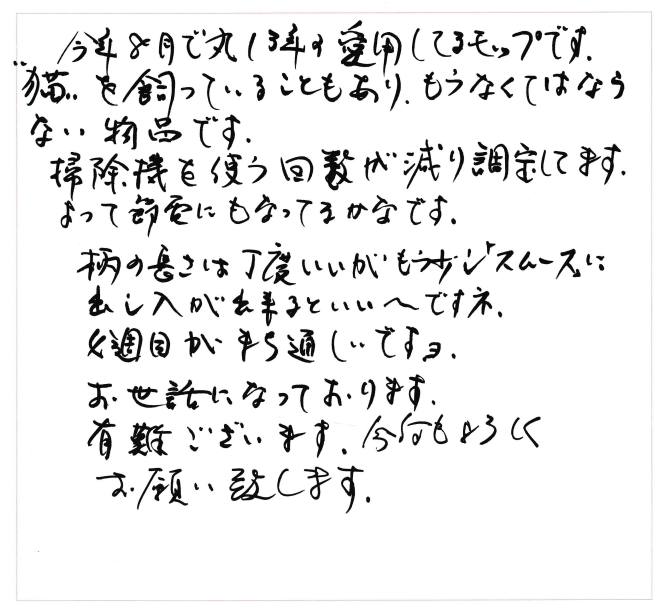 今年8月で丸13年の愛用してるモップです.
"猫"を飼っていることもあり、もうなくてはなら
ない物品です.
掃除機を使う回数が減り調宝してます.
よって節電にもなってるかなです.
柄の長さは丁度いいがもう少し「スムーズ」に
出し入が出来るといい〜ですネ.
4週目が待ち遠しいですョ.
お世話になっております.
有難ございます. 今后もよろしく
お願い致します.